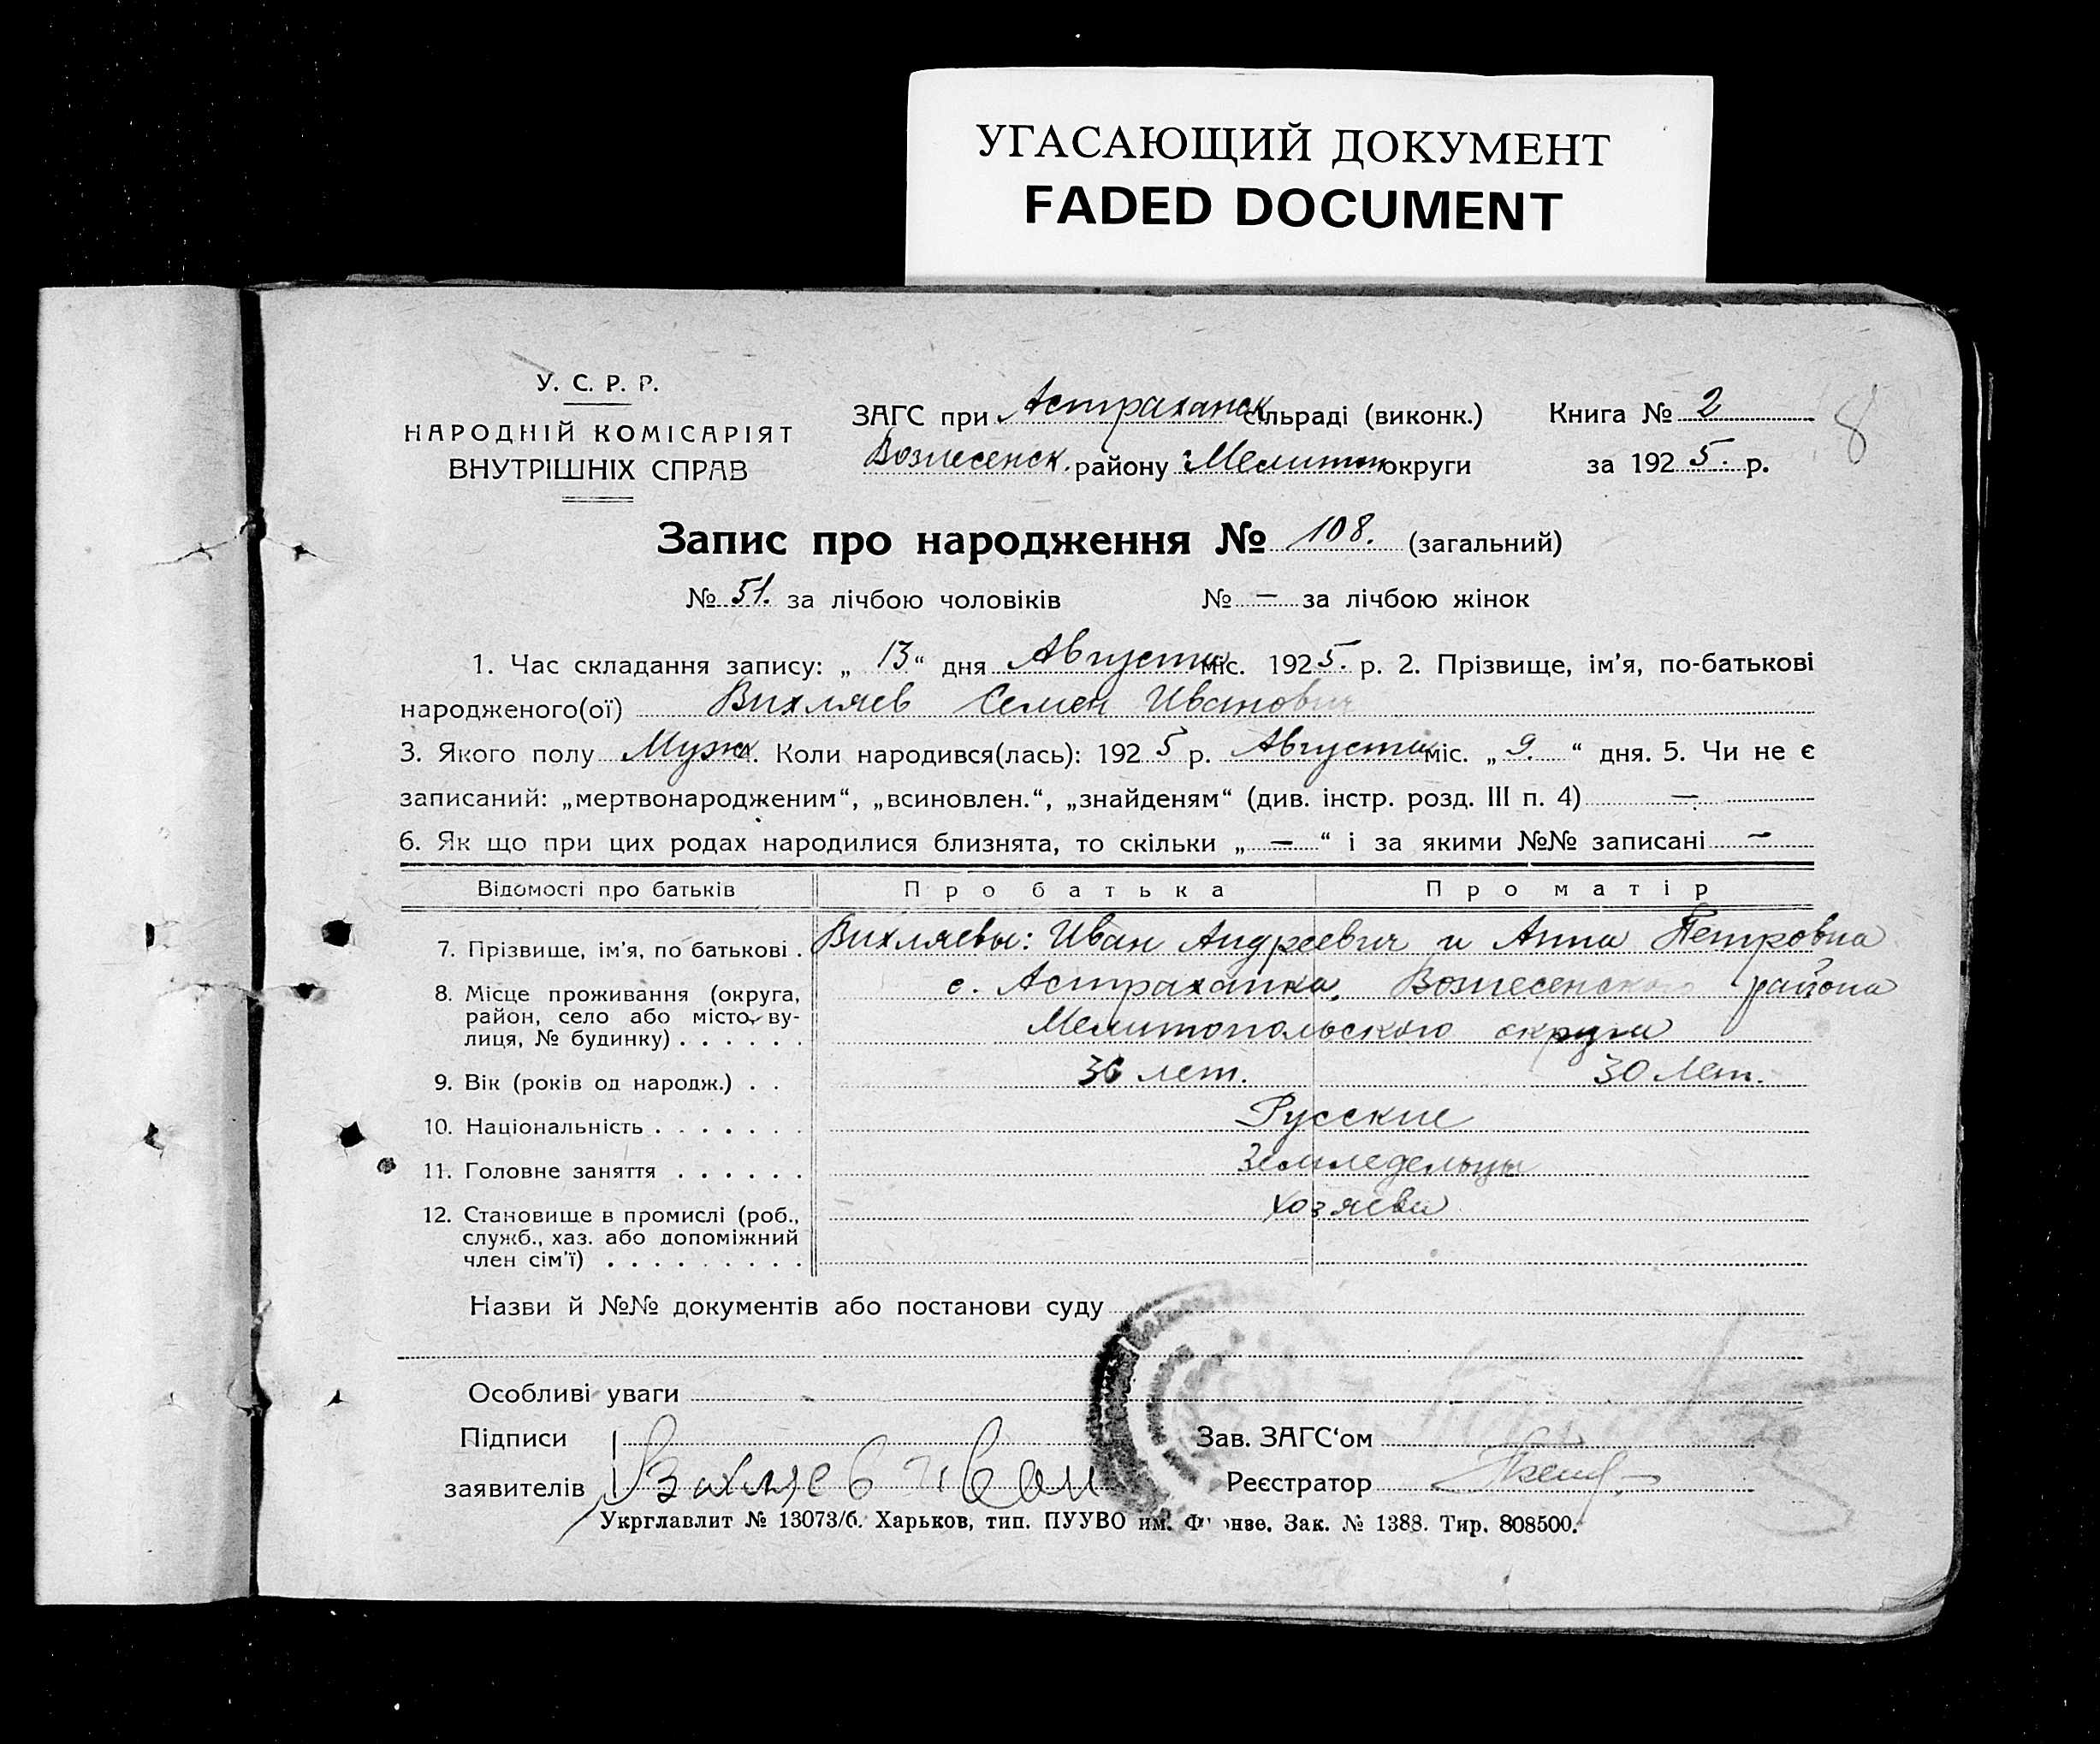 УГАСАЮЩИЙ ДОКУМЕНТ
FADED DOCUMENT
У. С. Р. Р.
НАРОДНІЙ КОМІСАРІЯТ
ВНУТРІШНІХ СПРАВ
ЗАГС при Астраханск сільраді (виконк.) Книга № 2
8
Вознесенск. району Мелитоп округи за 1925. р.
Запис про народження № 108. (загальний)
№ 51. за лічбою чоловіків № — за лічбою жінок
1. Час складання запису: „ 13 “ дня Августа міс. 1925. р. 2. Прізвище, ім'я, по-батькові
народженого(ої) Вихляев Семен Иванович
3. Якого полу Муж. 4. Коли народився(лась): 1925 р. Августа міс. „ 9. “ дня. 5. Чи не є
записаний: „мертвонародженим“, „всиновлен.“, „знайденям“ (див. інстр. розд. III п. 4) —
6. Як що при цих родах народилися близнята, то скільки „ — “ і за якими №№ записані —
Відомості про батьків Про батька Про матір
7. Прізвище, ім'я, по батькові . Вихляевы: Иван Андреевич и Анна Петровна
8. Місце проживання (округа, с. Астраханка, Вознесенского района
район, село або місто, ву-
лиця, № будинку) . . . . . . Мелитопольского округа
9. Вік (років од народж.) . . 36 лет. 30 лет.
10. Національність . . . . . . . Русские
11. Головне заняття . . . . . . Земледельцы
12. Становище в промислі (роб., хозяева
служб., хаз. або допоміжний
член сім'ї) . . . . . . . . .
Назви й №№ документів або постанови суду
Особливі уваги
Підписи Зав. ЗАГС‘ом
заявителів Вихляев Иван Реєстратор
Укрглавлит № 13073/б. Харьков, тип. ПУУВО им. Фрунзе. Зак. № 1388. Тир. 808500.